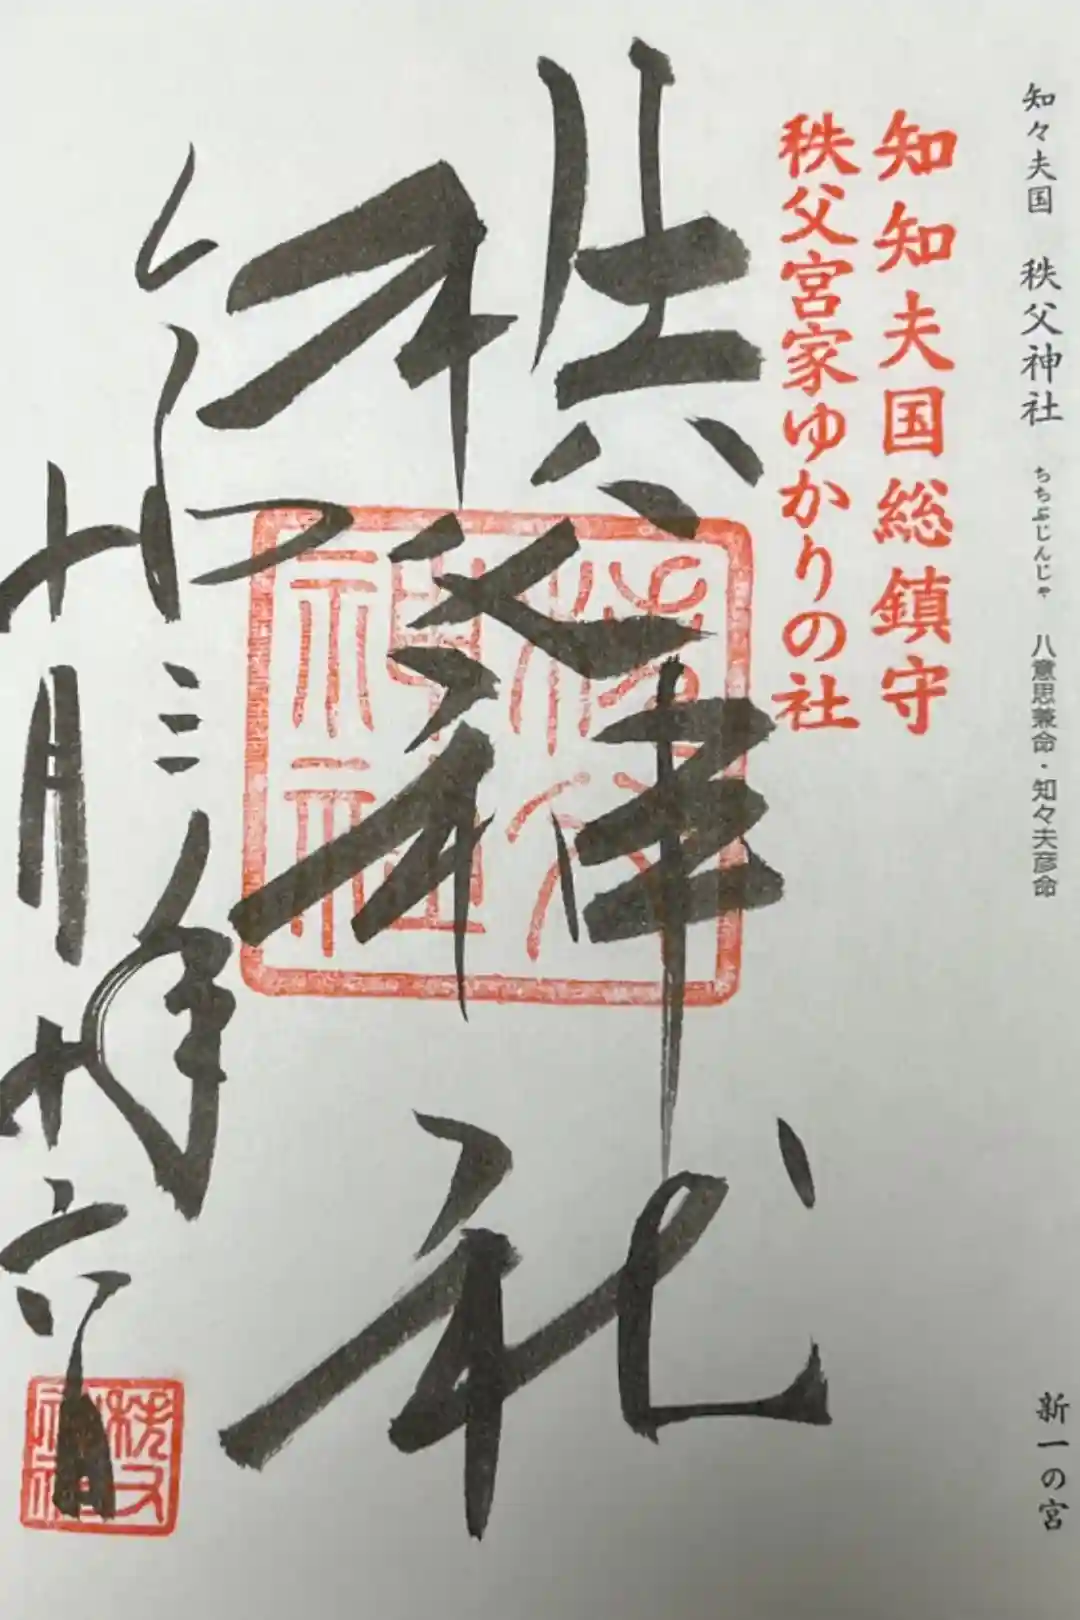 知々夫国 秩父神社 ちちぶじんじゃ 八意思兼命・知々夫彦命 新一の宮
知知夫国総鎮守
秩父宮家ゆかりの社
秩父神社
秩父
神社
令和三年
十月廿六日
秩父
神社